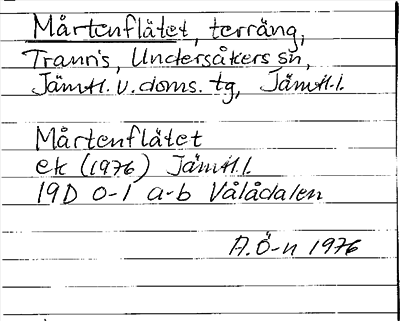 Mårtenflätet, terräng,
Tranris, Undersåkers sn,
Jämtl. v. doms. tg, Jämtl. l.
Mårtenflätet
ek (1976) Jämtl. l.
19D 0-1 a-b Vålådalen
A.Ö-n 1976